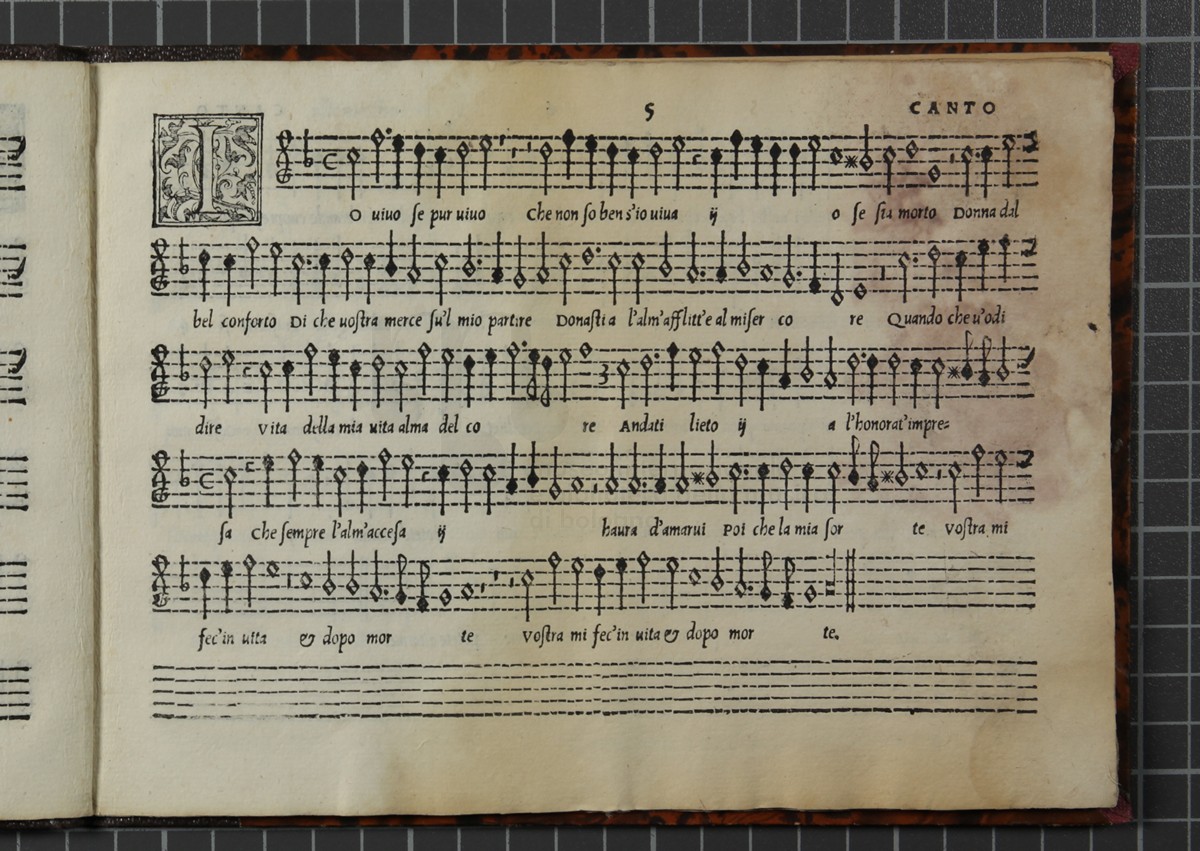 5 CANTO
IO uiuo se pur uiuo Che non so ben s'io uiua ij o se sia morto Donna dal
bel conforto Di che uostra merce su'l mio partire Donasti a l'alm'afflitt'e al miser co re Quando che u'odi
dire Vita della mia uita alma del co re Andati lieto ij a l'honorat'impre=
sa Che sempre l'alm'accesa ij haura d'amarui Poi che la mia sor te vostra mi
fec'in uita & dopo mor te vostra mi fec'in uita & dopo mor te.